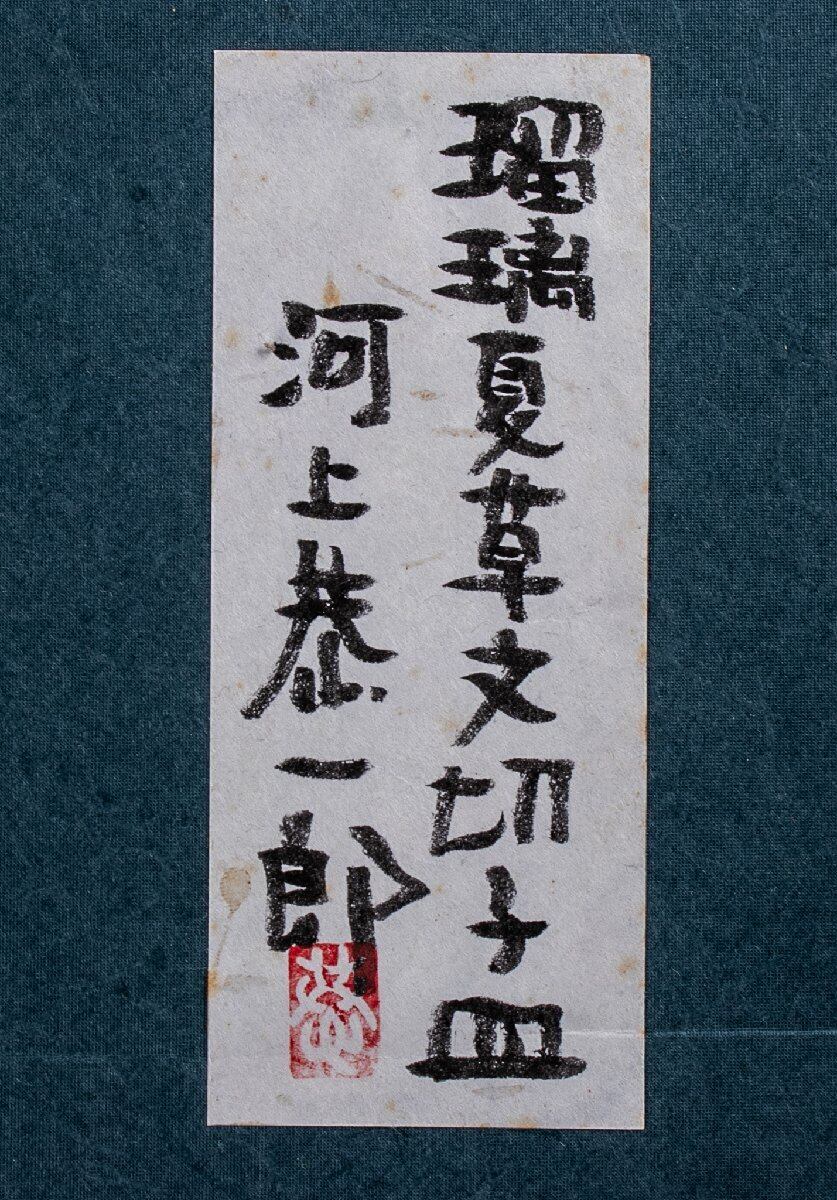 瑠璃夏草文切子皿
河上恭一郎
恭